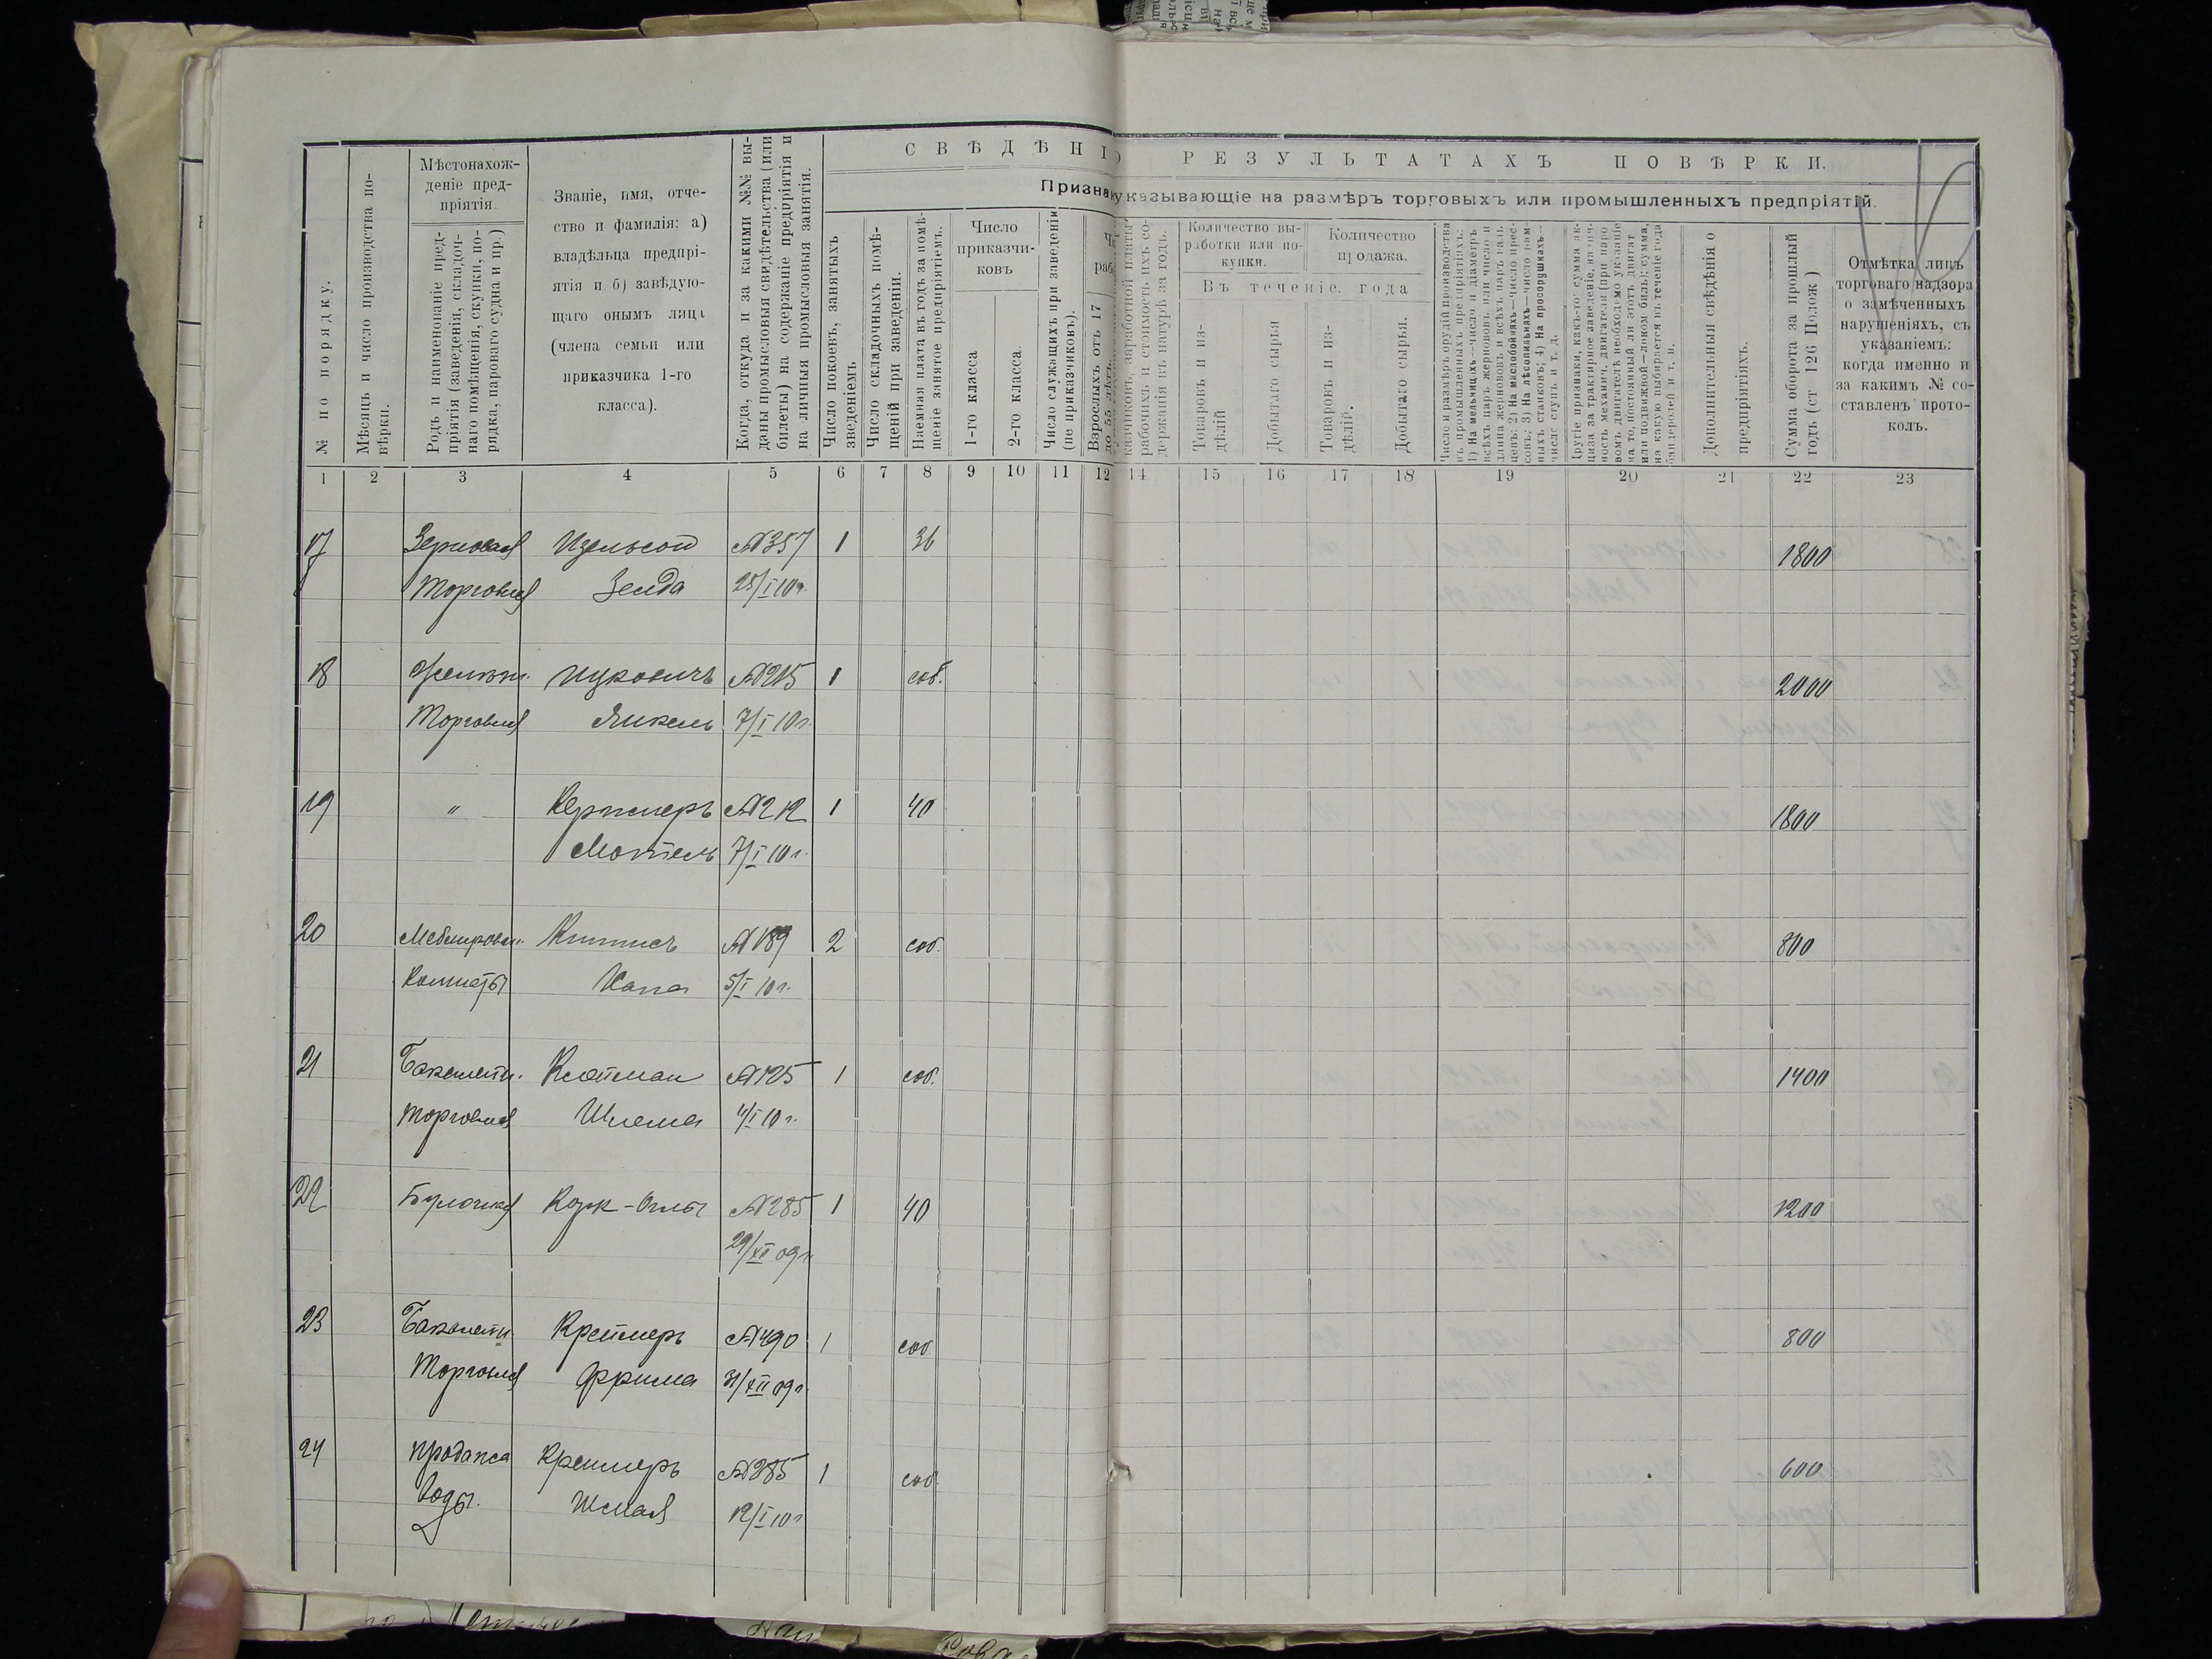 СВѢДѢНІ
О РЕЗУЛЬТАТАХЪ ПОВѢРКИ.
Призна
указывающіе на размѣръ торговыхъ или промышленныхъ предпріятій.
№ по порядку.
Мѣсяцъ и число производства по-
вѣрки.
Мѣстонахож-
деніе пред-
пріятія.
Родъ и наименованіе пред-
пріятія (заведенія, складоч-
наго помѣщенія, скупки, по-
рядка, пароваго судна и пр.)
Званіе, имя, отче-
ство и фамилія: а)
владѣльца предпрі-
ятія и б) завѣдую-
щаго онымъ лица
(члена семьи или
приказчика 1-го
класса).
Когда, откуда и за какими №№ вы-
даны промысловыя свидѣтельства (или
билеты) на содержаніе предпріятія и
на личныя промысловыя занятія.
Число покоевъ, занятыхъ
зведеніемъ
Число складочныхъ помѣ-
щеній при заведеніи.
Наемная плата въ годъ за помѣ-
щеніе занятое предпріятіемъ.
Число
приказчи-
ковъ
1-го класса
2-го класса.
Число служащихъ при заведеніи
(не приказчиковъ).
Взрослыхъ отъ 17
казчиковъ, заработной платы
рабочихъ и стоимость ихъ со-
держанія въ натурѣ за годъ.
Количество вы-
работки или по-
купки.
Количество
продажа.
Въ теченіе года
Товаровъ и из-
дѣлій
Добытаго сырья
Товаровъ и из-
дѣлій.
Добытаго сырья.
Число и размѣръ орудій производства
въ промышленныхъ предпріятіяхъ:
1) На мельницахъ—число и діаметръ
всѣхъ паръ жернововъ или число и
длина жернововъ и всѣхъ паръ валь
цевъ; 2) На маслобойняхъ—число прес-
совъ; 3) На лѣсопильняхъ—число рам-
ныхъ станковъ; 4) На просорушкахъ—
число ступъ и т. д.
Другіе признаки, какъ-то: сумма ак-
циза за трактирное заведеніе, налич-
ность механич. двигателя (при паро
вомъ двигателѣ необходимо указаніе
на то, постоянный ли этотъ двигат
или подвижной—локомобиль); сумма,
на какую выбирается въ теченіе года
бандеролей и т. п.
Дополнительныя свѣдѣнія о
предпріятіяхъ.
Сумма оборота за прошлый
годъ (ст 126 Полож)
Отмѣтка лицъ
торговаго надзора
о замѣченныхъ
нарушеніяхъ, съ
указаніемъ:
когда именно и
за какимъ № со-
ставленъ прото-
колъ.
1 2 3 4 5 6 7 8 9 10 11 12 14 15 16 17 18 19 20 21 22 23
17 Зерновая Изельсон №357 1 36 1800
Торговля Зелда 25/I 10г.
18 Ицковичъ №215 1 соб. 2000
Торговля Янкель 7/I 10г.
19 " Кержнеръ №212 1 40 1800
Мотель 7/I 10г.
20 Меблирован. №189 2 соб. 800
Комнаты Хана 5/I 10г.
21 Бакалейн. Клейман №125 1 соб. 1400
Торговля Шлема 4/I 10г.
22 Булочная №285 1 40 1200
29/XII 09г
23 Бакалейн. Креймеръ №490 1 соб 800
Торговля Фрима 31/XII 09г.
24 Продажа Креймеръ №285 1 соб. 600
Воды. 12/I 10г